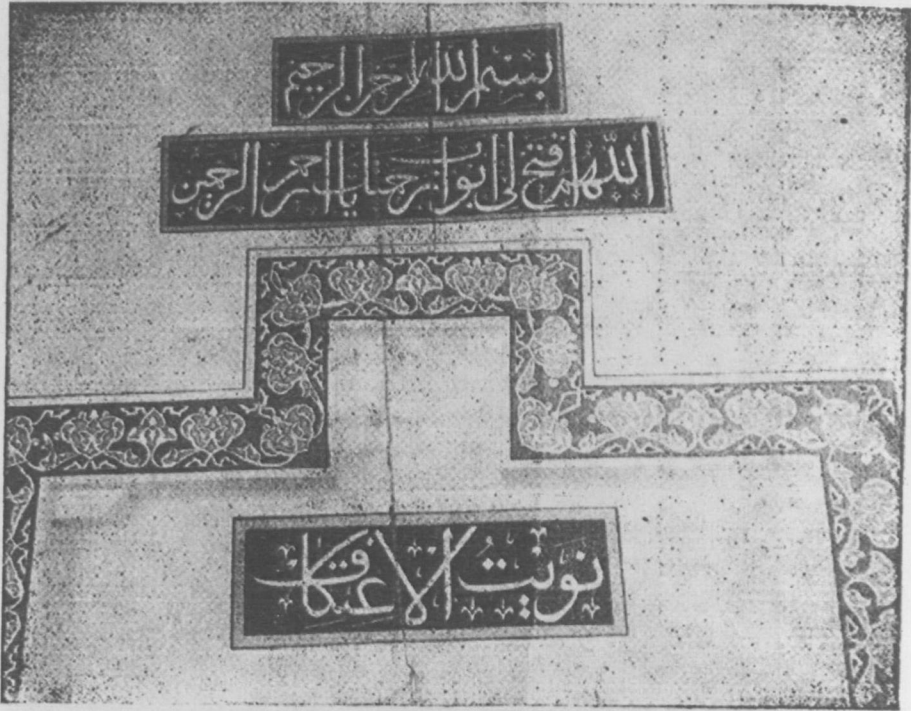 بسم الله الرحمن الرحيم
اللهم افتح لى ابواب رحمتك يا ارحم الرحمين
نَوَيْتُ الاعتكاف